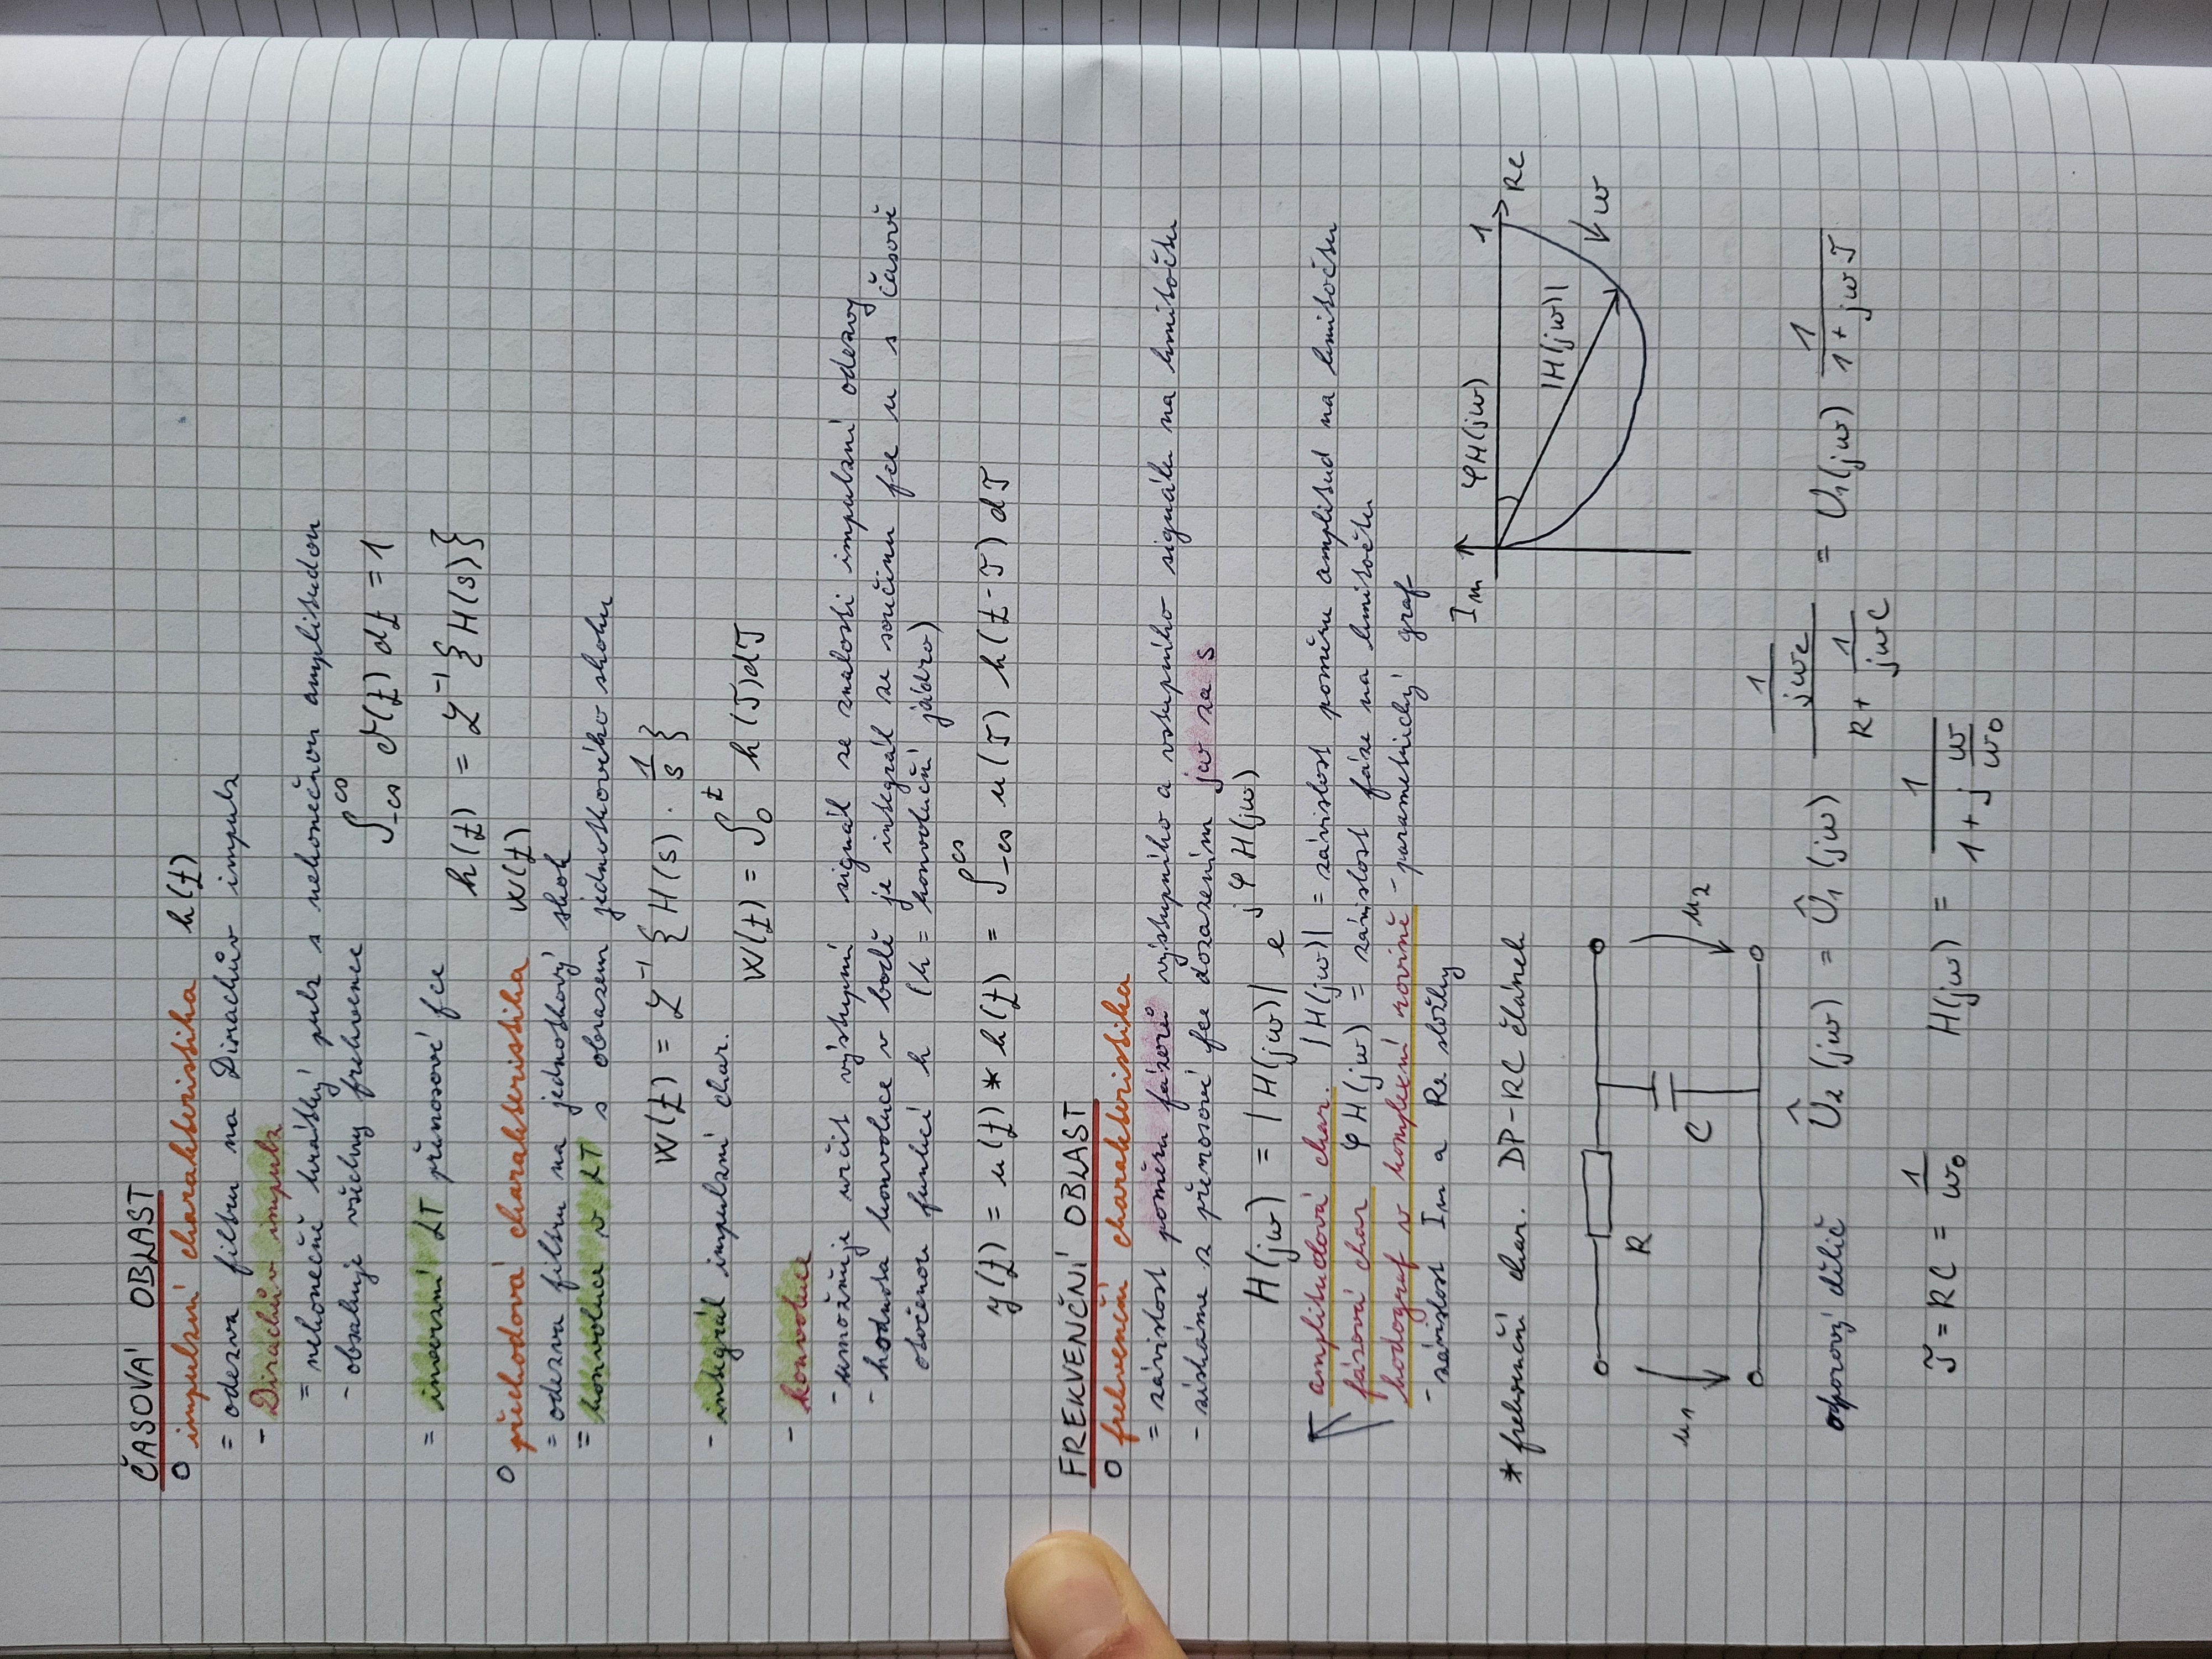 ČASOVÁ OBLAST
○ impulzní charakteristika h(t)
= odezva filtru na Dirachův impulz
- Dirachův impulz
= nekonečně krátký pulz s nekonečnou amplitudou
- obsahuje všechny frekvence
∫_{-∞}^{∞} δ(t) dt = 1
= inverzní LT přenosové fce
h(t) = L^{-1} {H(s)}
○ přechodová charakteristika w(t)
= odezva filtru na jednotkový skok
= konvoluce v LT s obrazem jednotkového skoku
w(t) = L^{-1} {H(s) · 1/s}
- integrál impulzní char.
w(t) = ∫_0^t h(τ)dτ
- konvoluce
- umožňuje určit výstupní signál ze znalosti impulzní odezvy
- hodnota konvoluce v bodě je integrál ze součinu fce u s časově
otočenou funkcí h (h = konvoluční jádro)
y(t) = u(t) * h(t) = ∫_{-∞}^{∞} u(τ) h(t-τ) dτ
FREKVENČNÍ OBLAST
○ frekvenční charakteristika
= závislost poměru fázorů výstupního a vstupního signálu na kmitočtu
- získáme z přenosové fce dozazením jω za s
H(jω) = |H(jω)| e^{jφH(jω)}
amplitudová char. |H(jω)| = závislost poměru amplitud na kmitočtu
fázová char φH(jω) = závislost fáze na kmitočtu
hodograf v komplexní rovině - parametrický graf
- závislost Im a Re složky
Im φH(jω) 1
Re
|H(jω)|
ω
* frekvenční char. DP-RC článek
R
u1 C u2
odporový dělič Û2 (jω) = Û1 (jω) (1/(jωC))/(R + 1/(jωC)) = U1(jω) 1/(1 + jωτ)
τ = RC = 1/ω0 H(jω) = 1/(1 + j ω/ω0)